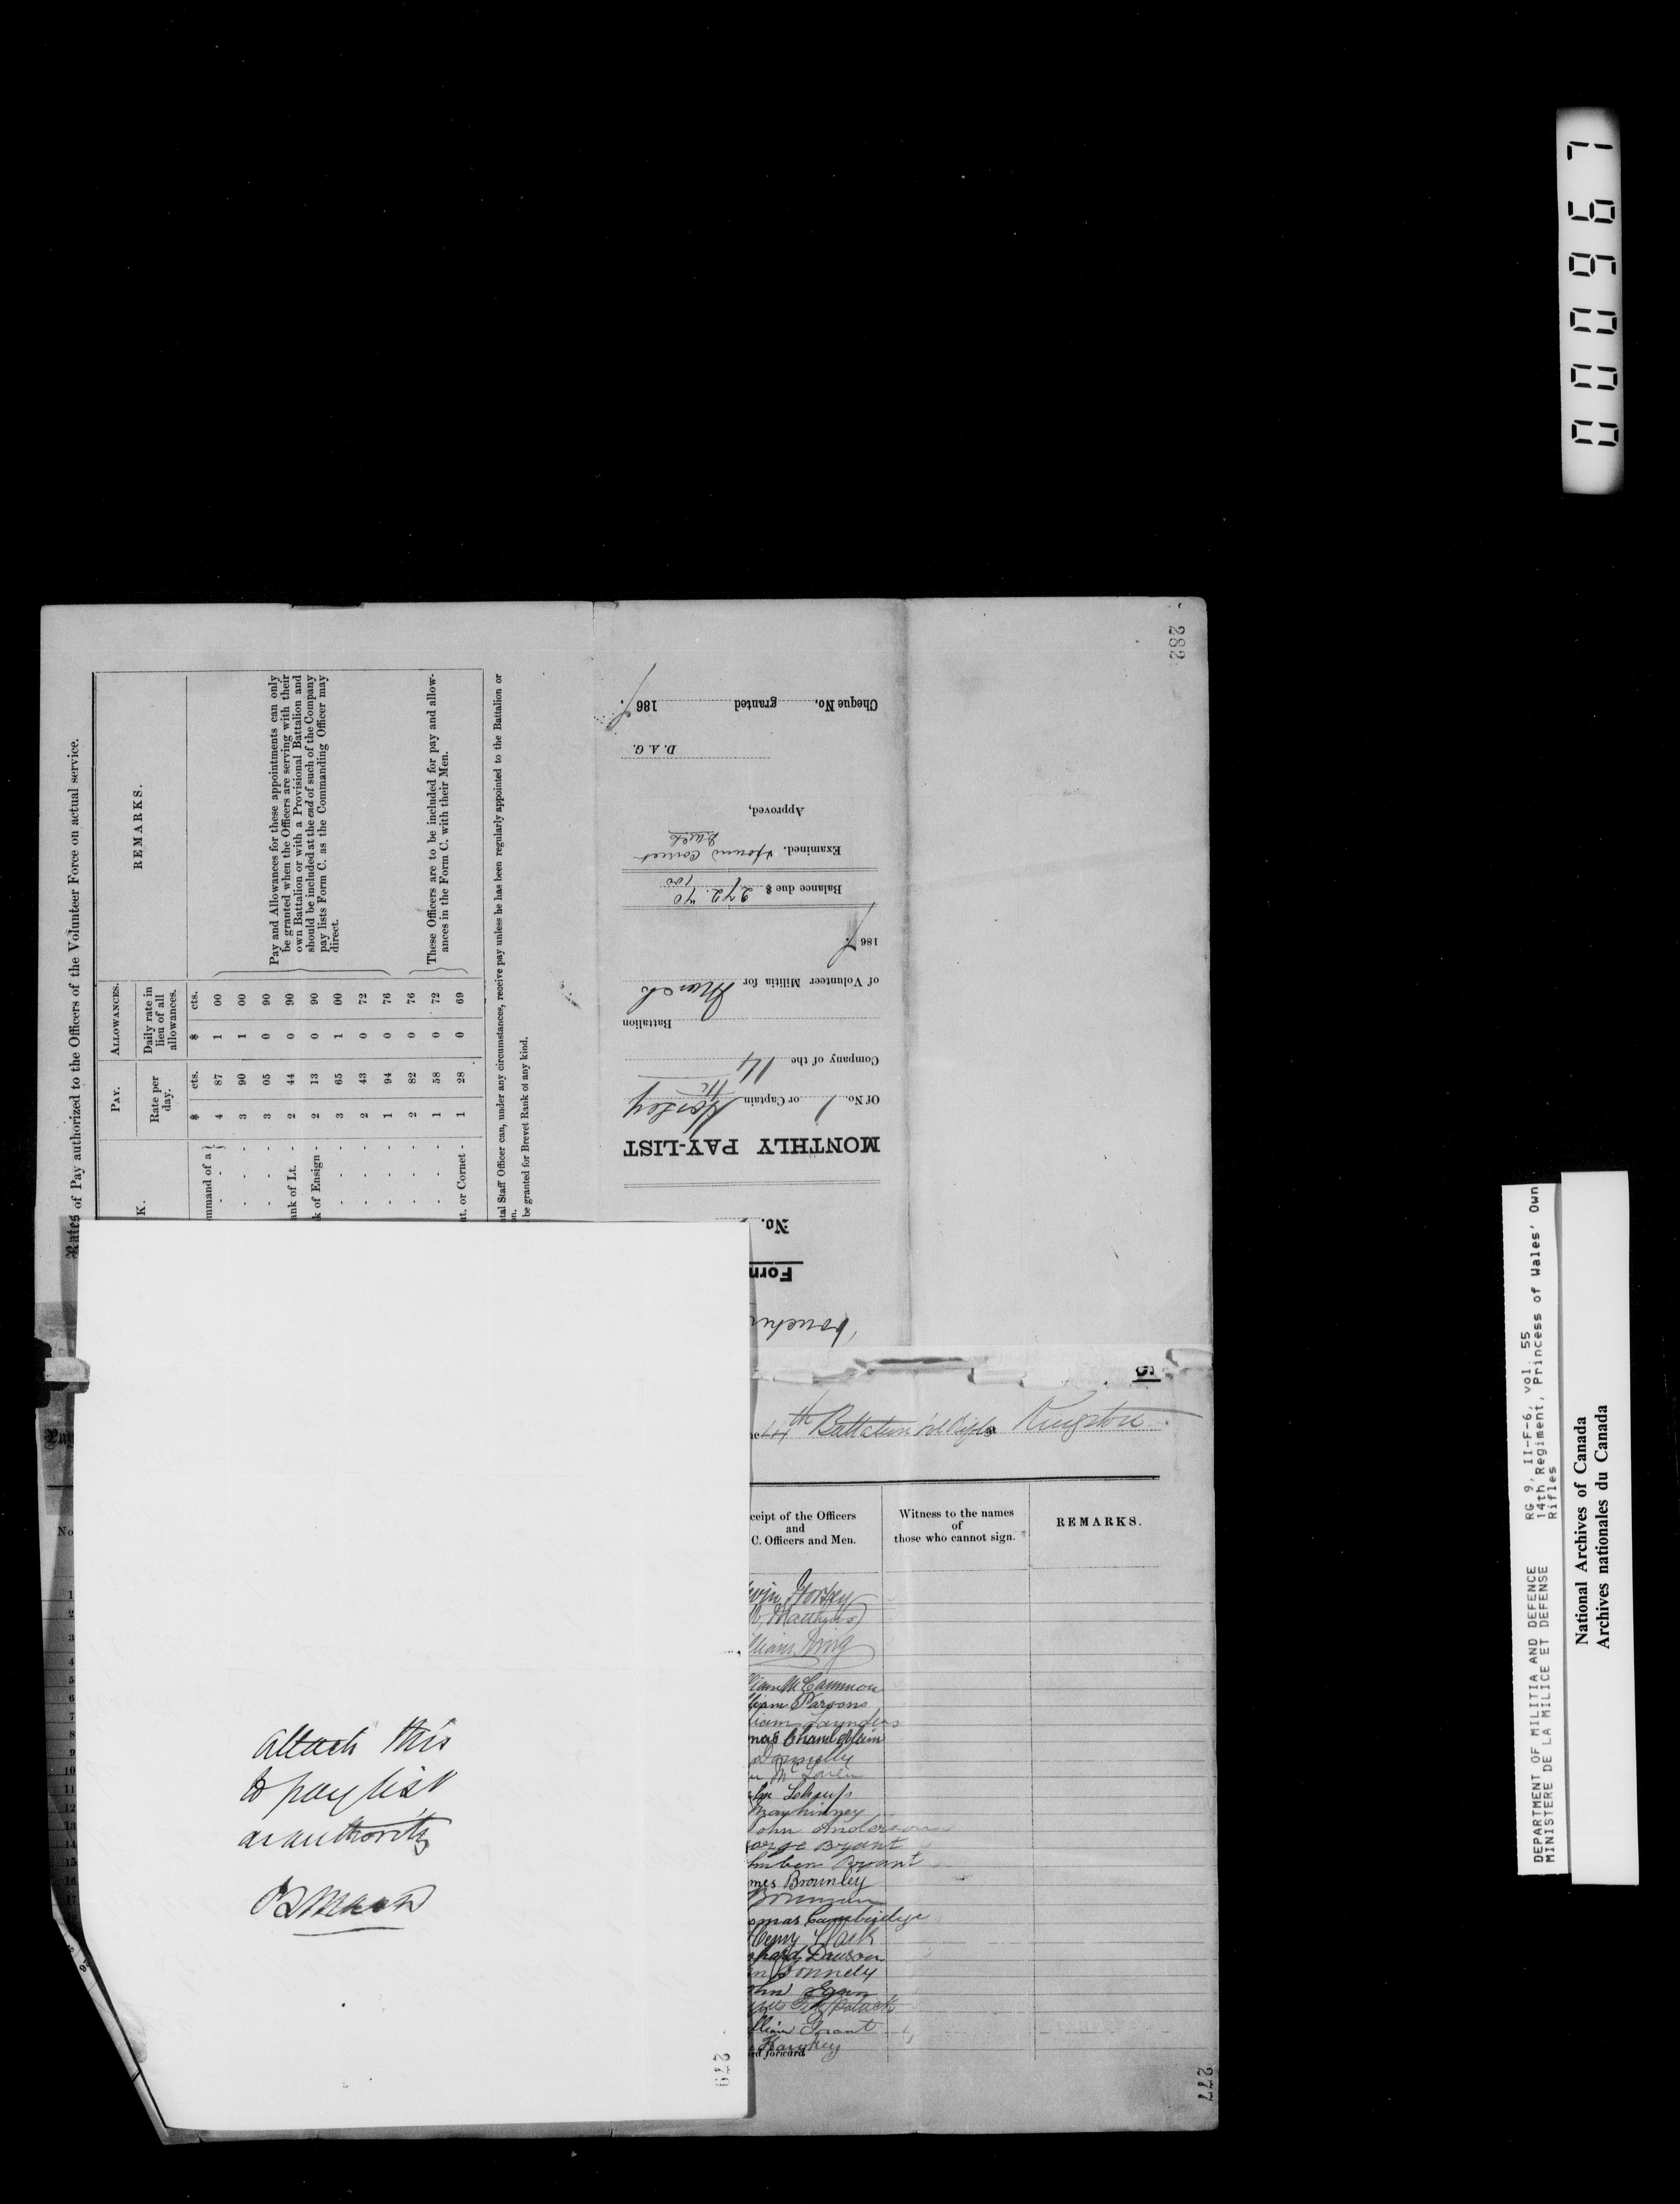 000967
282
Rates of Pay authorized to the Officers of the Volunteer Force on actual service.
K.
PAY.
ALLOWANCES.
REMARKS.
Rate per day.
Daily rate in lieu of all allowances.
$ cts. $ cts.
mmand of a } 4 87 1 00
3 90 1 00
3 05 0 90
ank of Lt. - 2 44 0 90
k of Ensign - 2 13 0 90
3 65 1 00
2 43 0 72
1 94 0 76
2 82 0 76
1 58 0 72
nt. or Cornet - 1 28 0 69
Pay and Allowances for these appointments can only
be granted when the Officers are serving with their
own Battalion or with a Provisional Battalion and
should be included at the end of such of the Company
pay lists Form C. as the Commanding Officer may
direct.
These Officers are to be included for pay and allow-
ances in the Form C. with their Men.
tal Staff Officer can, under any circumstances, receive pay unless he has been regularly appointed to the Battalion or
on.
be granted for Brevet Rank of any kind.
Vouch
Form
No.
MONTHLY PAY-LIST
Of No. 1 or Captain Horsey
Company of the 14th
Battalion
of Volunteer Militia for March
186
Balance due $ 272.70/100
Examined. Found Correct
Approved,
D. A. G.
Cheque No. granted 186
14th Battalion Vol Rifles at Kingston
No
ceipt of the Officers
and
C. Officers and Men.
Witness to the names
of
those who cannot sign.
REMARKS.
1
2
3
4
5
6
7
8
9
10
11
12
13
14
15
16
17
win Horsey
lliam King
lliam McCammon
lliam Parsons
liam Saunders
mas Chamberlain
Donnelly
McLaren
Mawhinney
John Anderson
eorge Bryant
euben Bryant
mes Brownley
omas Cambridge
Henry Clark
chard Dawson
hn Donnely
ohn Egan
Fitzpatrick
lliam Grant
ed forward
277
attach this
to pay list
as authority
279
DEPARTMENT OF MILITIA AND DEFENCE
MINISTERE DE LA MILICE ET DEFENSE
RG 9, II-F-6, vol. 55
14th Regiment, Princess of Wales' Own
Rifles
National Archives of Canada
Archives nationales du Canada